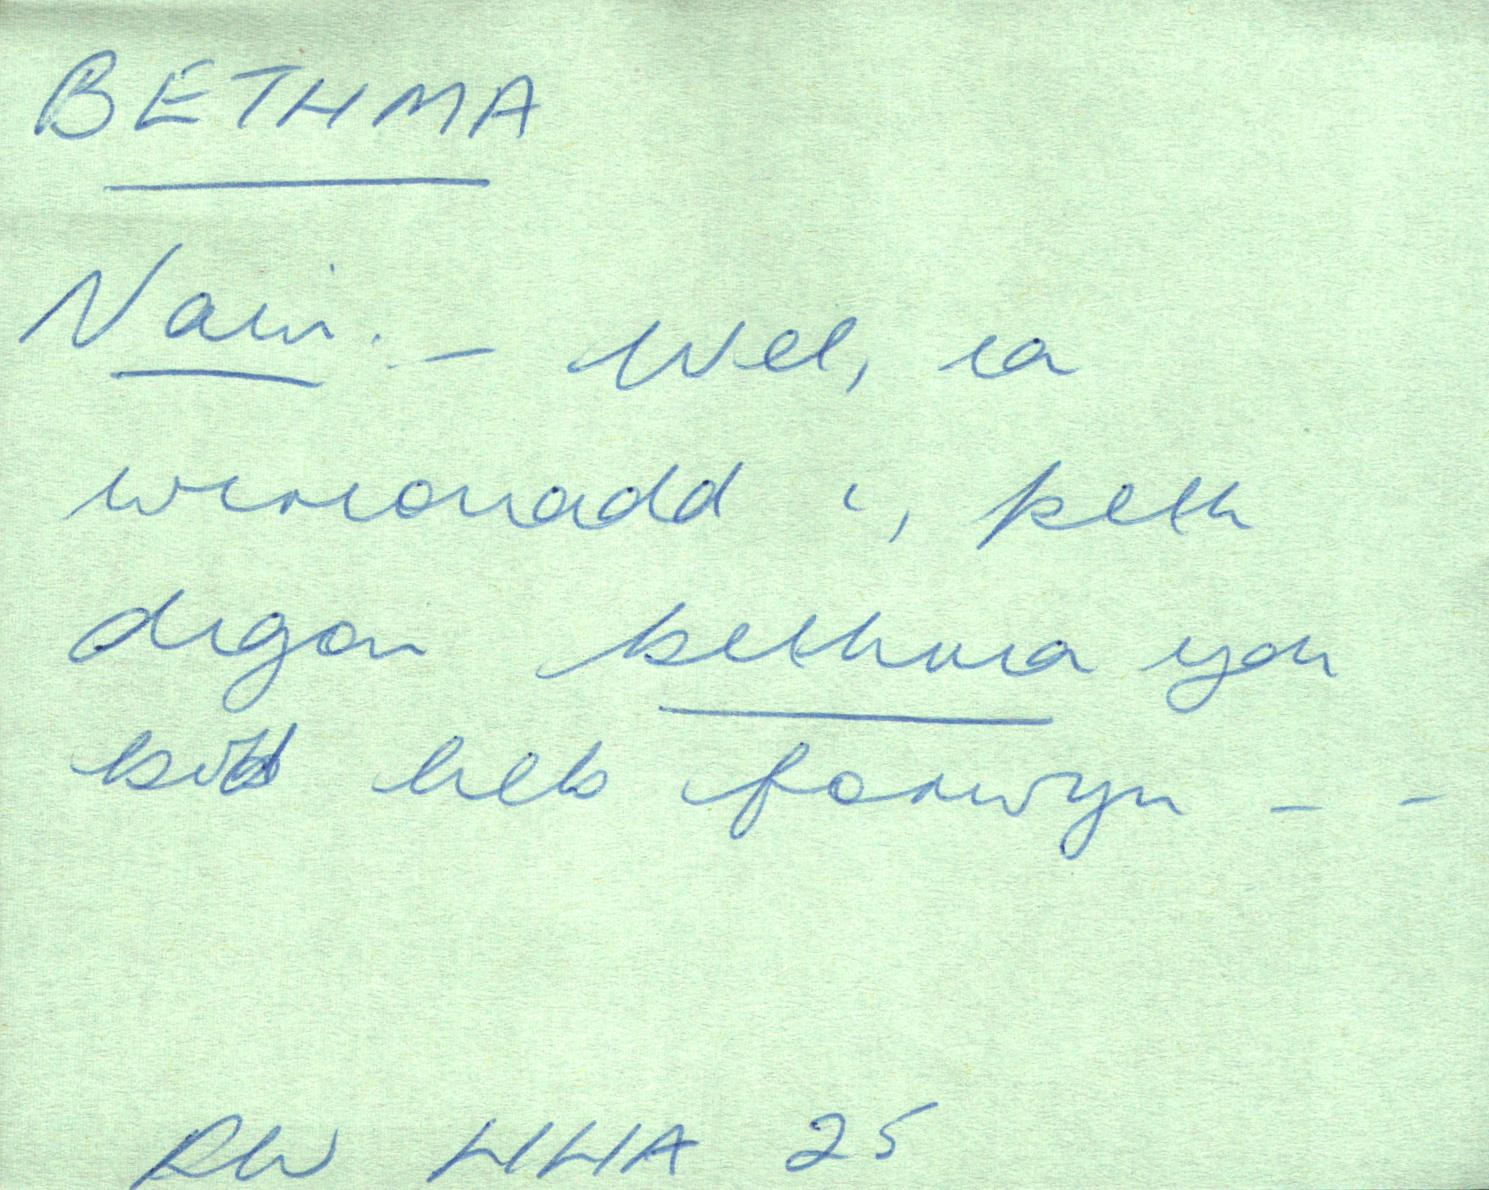 BETHMA
Nain. – Wel, ia
wirionadd i, peth
digon bethma ydi
bod heb forwyn – –
RW HHA 25